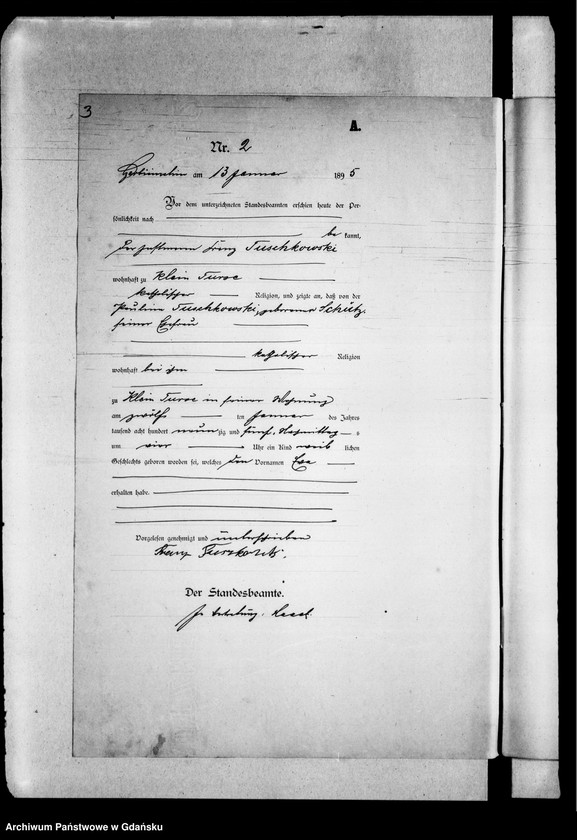 3
A.
Nr. 2
am 13 Januar 1895
Vor dem unterzeichneten Standesbeamten erschien heute der Per-
sönlichkeit nach
be kannt,
der Franz Tuschkowski
wohnhaft zu Klein Turse
katholischer Religion, und zeigte an, daß von der
Pauline Tuschkowski, geborenen Schütz
seiner Ehefrau
katholischer Religion
wohnhaft bei ihm
zu Klein Turse in seiner Wohnung
am zwölf ten Januar des Jahres
tausend acht hundert neun zig und fünf, Nachmittag s
um vier Uhr ein Kind weib lichen
Geschlechts geboren worden sei, welches den Vornamen Eva
erhalten habe.
Vorgelesen, genehmigt und unterschrieben
Franz
Der Standesbeamte.
Archiwum Państwowe w Gdańsku